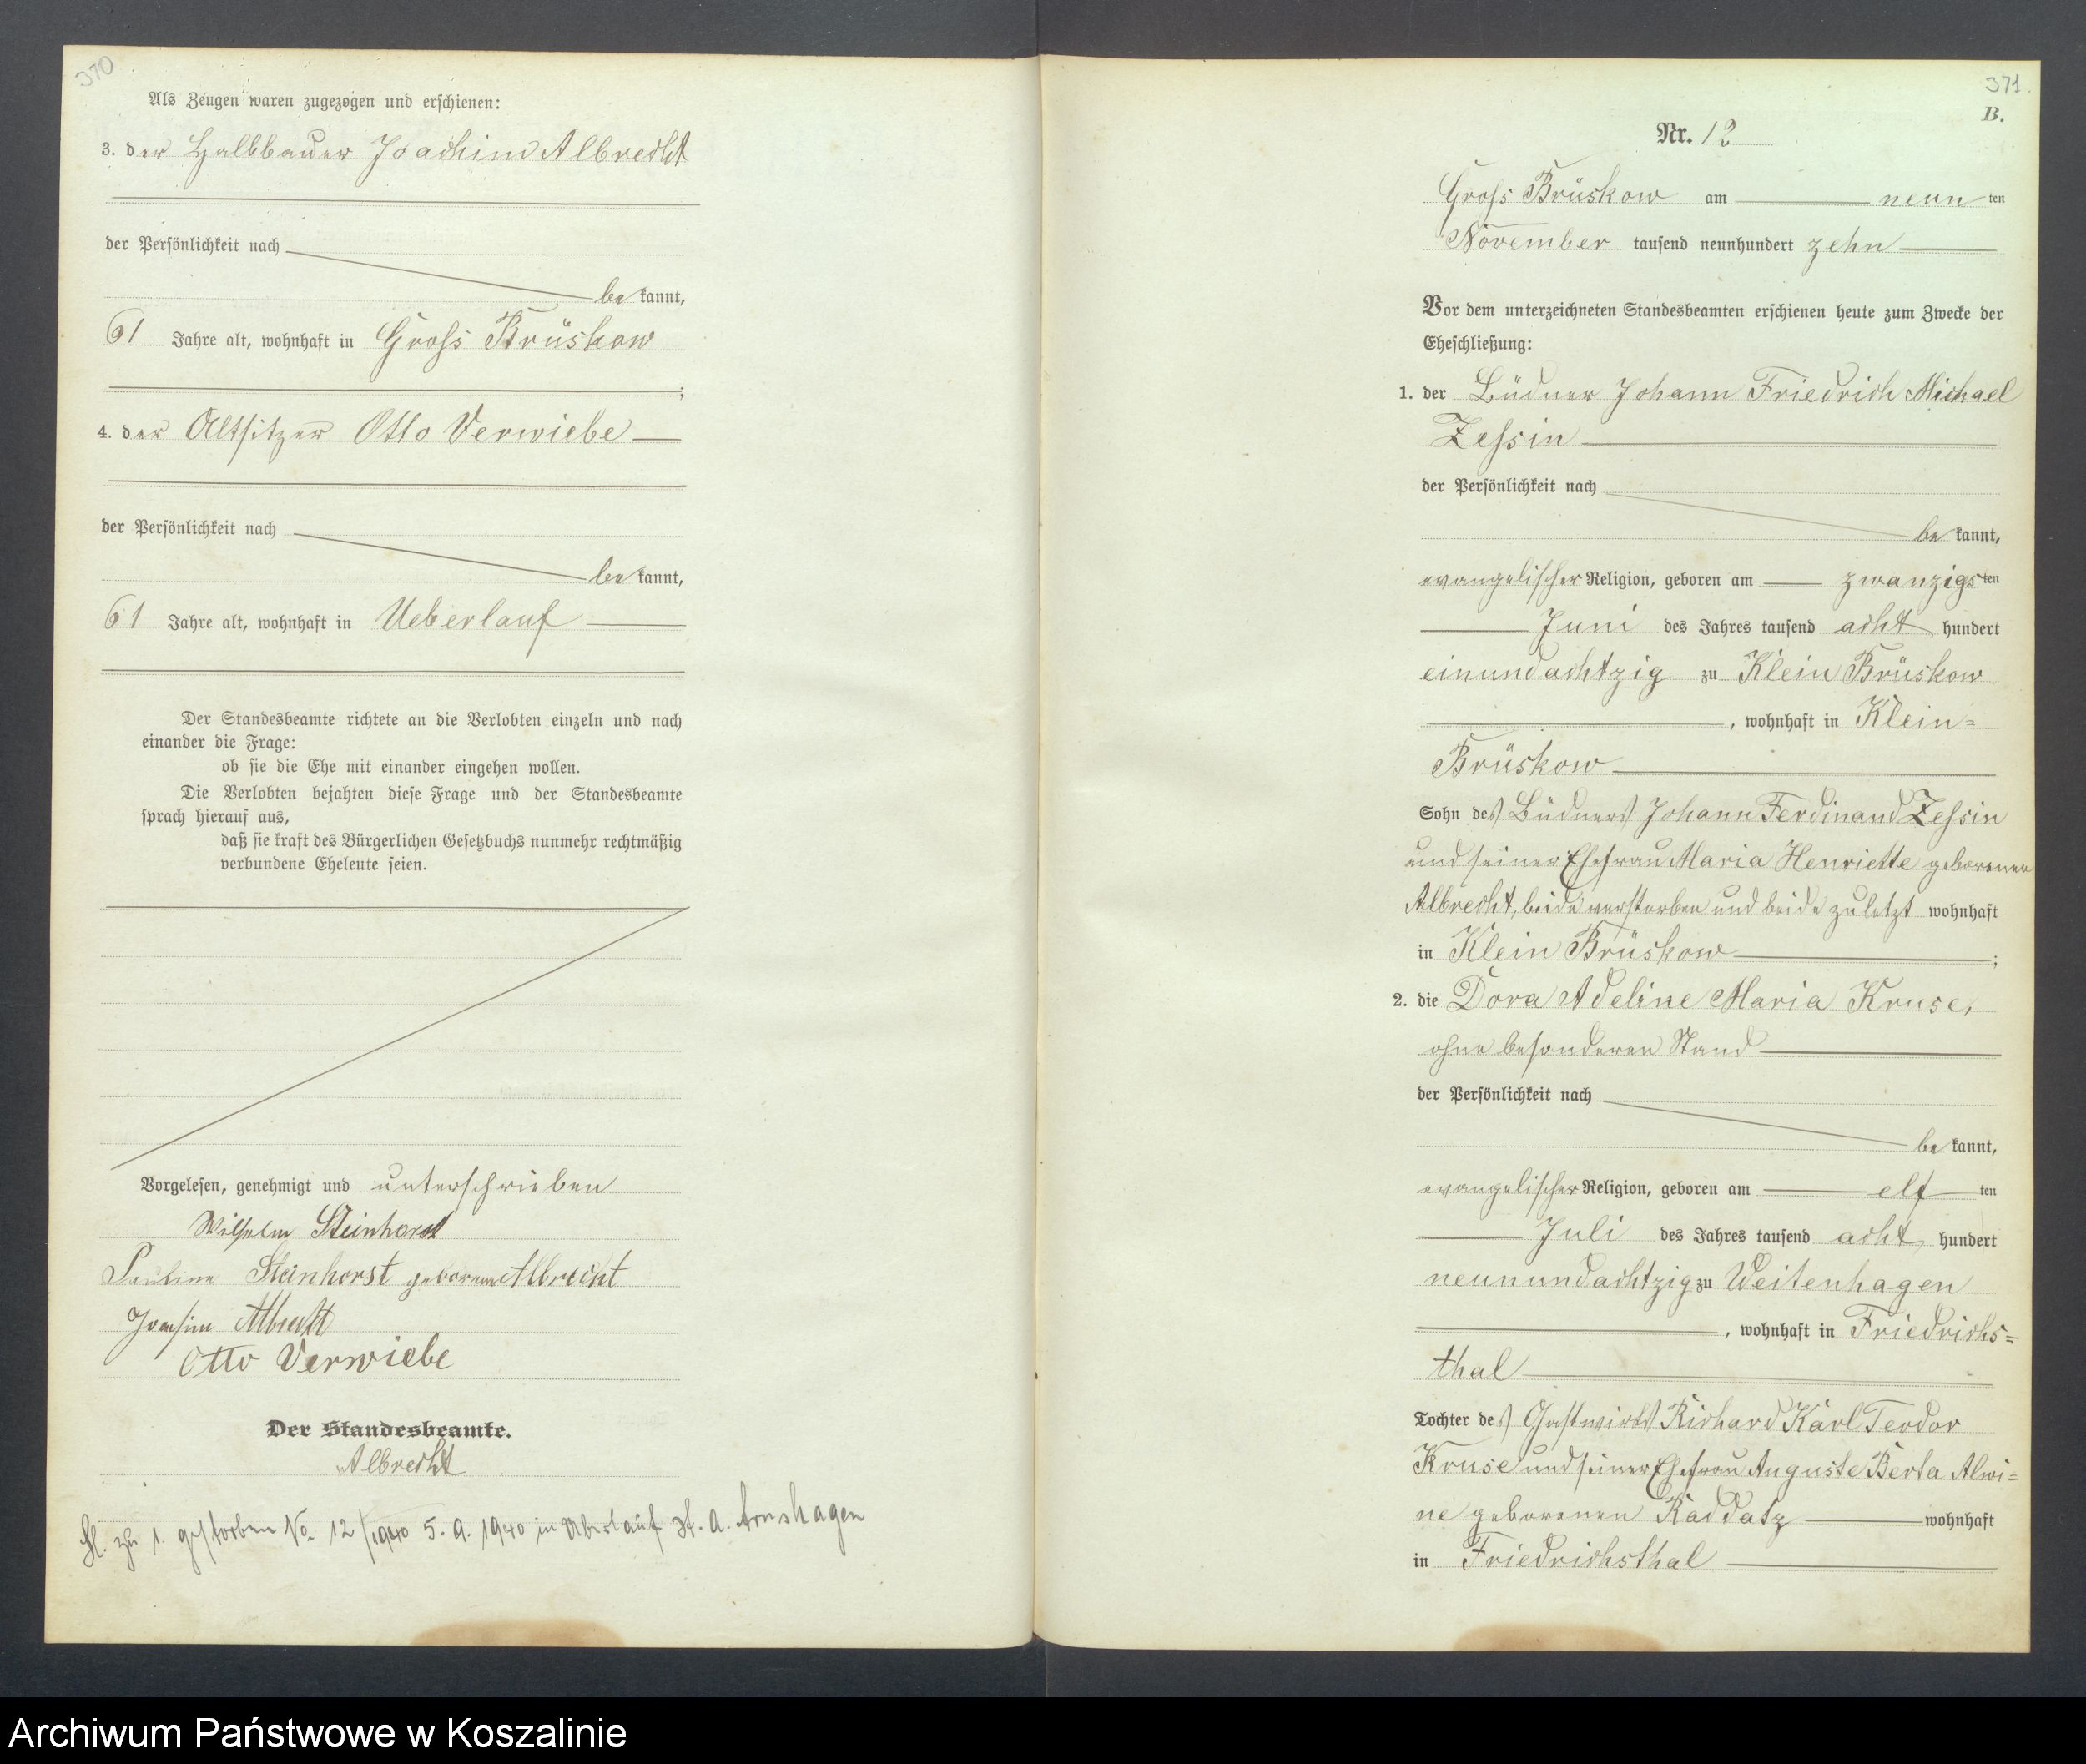 370
Als Zeugen waren zugezogen und erschienen:
3. der Halbbauer Joachim Albrecht
der Persönlichkeit nach
bekannt,
61 Jahre alt, wohnhaft in Gross Brüskow
;
4. der Altsitzer Otto Verwiebe
der Persönlichkeit nach
bekannt,
61 Jahre alt, wohnhaft in Ueberlauf
Der Standesbeamte richtete an die Verlobten einzeln und nach
einander die Frage:
ob sie die Ehe mit einander eingehen wollen.
Die Verlobten bejahten diese Frage und der Standesbeamte
sprach hierauf aus,
daß sie kraft des Bürgerlichen Gesetzbuchs nunmehr rechtmäßig
verbundene Eheleute seien.
Vorgelesen, genehmigt und unterschrieben
Wilhelm Steinhorst
Pauline Steinhorst geborene Albrecht
Joachim Albrecht
Otto Verwiebe
Der Standesbeamte.
Albrecht
zu 1. gestorben No. 12/1940 5.9.1940 in Überlauf St. A. Arnshagen
371.
B.
Nr. 12
Gross Brüskow am neunten
November tausend neunhundert zehn
Vor dem unterzeichneten Standesbeamten erschienen heute zum Zwecke der
Eheschließung:
1. der Büdner Johann Friedrich Michael
Zessin
der Persönlichkeit nach
bekannt,
evangelischer Religion, geboren am zwanzigsten
Juni des Jahres tausend acht hundert
einundachtzig zu Klein Brüskow
, wohnhaft in Klein=
Brüskow
Sohn des Büdners Johann Ferdinand Zessin
und seiner Ehefrau Maria Henriette geborenen
Albrecht, beide verstorben und beide zuletzt wohnhaft
in Klein Brüskow ;
2. die Dora Adeline Maria Kruse,
ohne besonderen Stand
der Persönlichkeit nach
bekannt,
evangelischer Religion, geboren am elften
Juli des Jahres tausend acht hundert
neunundachtzig zu Weitenhagen
, wohnhaft in Friedrichs=
thal
Tochter des Gastwirts Richard Karl Teodor
Kruse und seiner Ehefrau Auguste Berta Alwi=
ne geborenen Raddatz wohnhaft
in Friedrichsthal
Archiwum Państwowe w Koszalinie